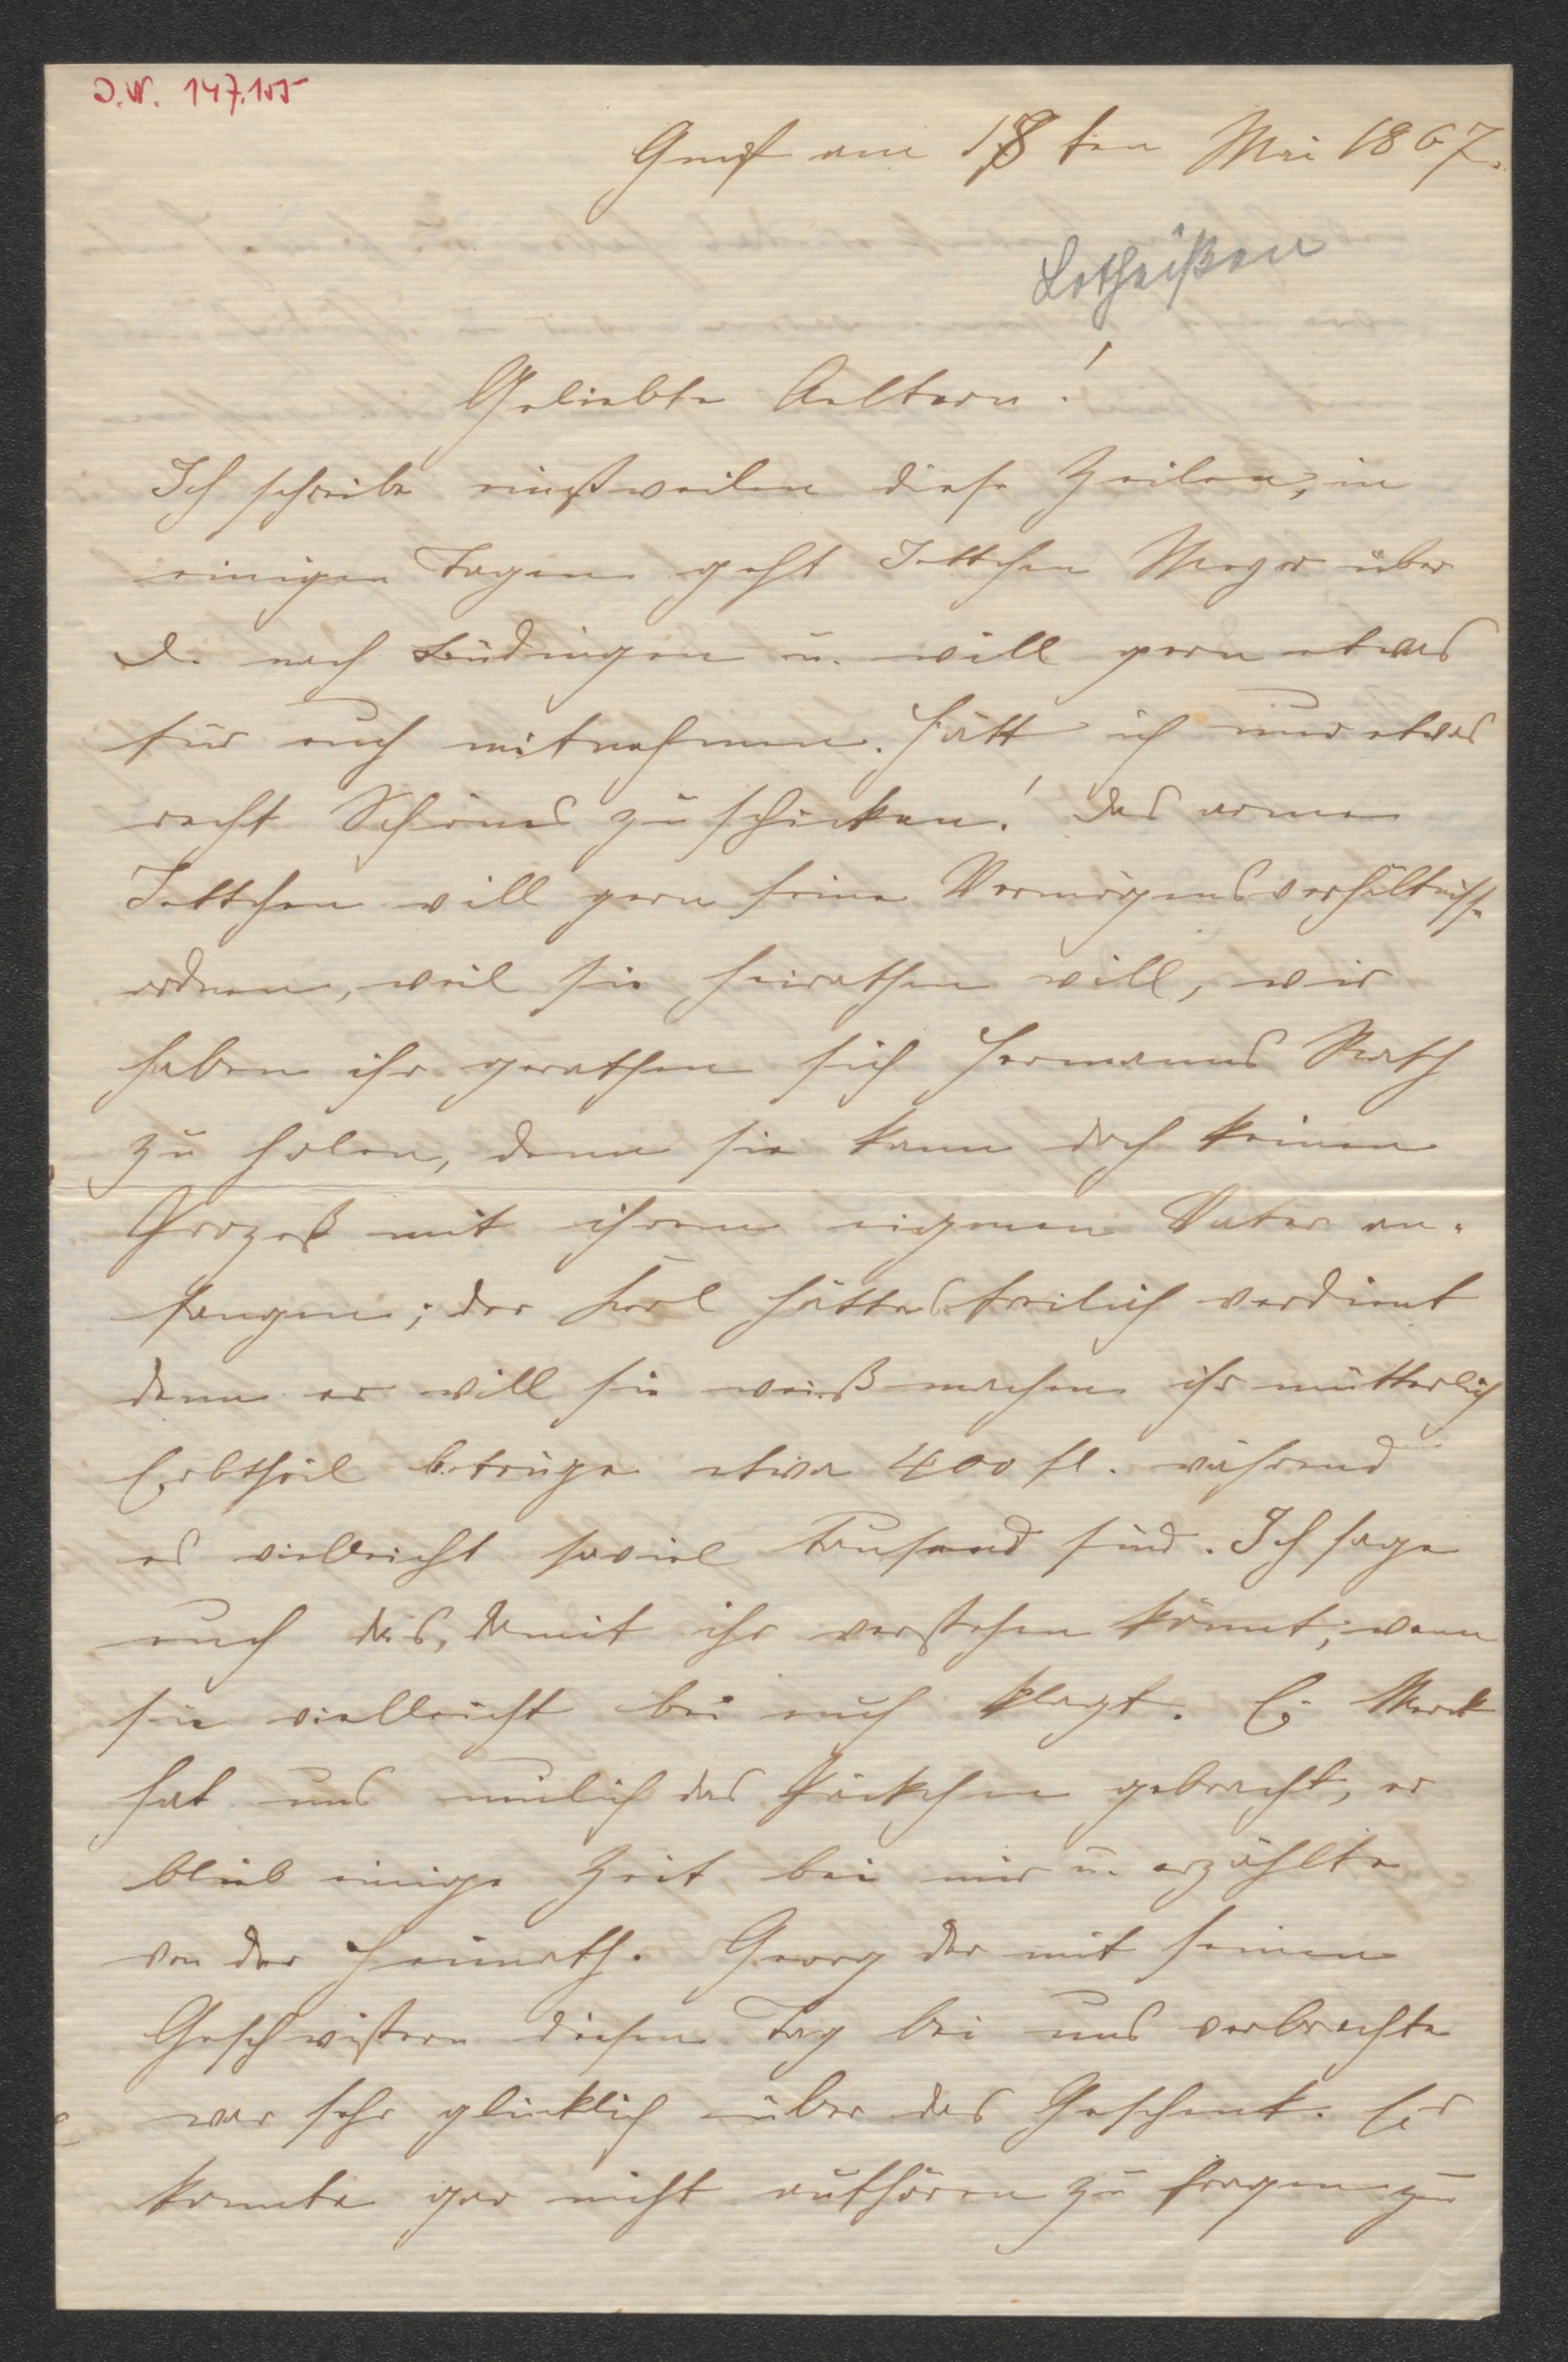 J.N. 147.105
Genf am 18 ten Mai 1867.
Lotheißen
Geliebte Aeltern!
Ich schreibe einstweilen diese Zeilen, in
einigen Tagen geht Jettchen Mayer über
D. nach Büdingen u. will gern etwas
für euch mitnehmen. Hätt ich nur etwas
recht Schönes zu schicken! Das arme
Jettchen will gern seine Vermögensverhältnisse
ordnen, weil sie heirathen will, wir
haben ihr gerathen sich Hermanns Rath
zu holen, denn sie kann doch keinen
Prozeß mit ihrem eigenen Vater an-
fangen; der Kerl hätte's freilich verdient
denn er will sie weiß machen ihr mütterlich
Erbtheil betrüge etwa 400 fl. während
es vielleicht soviel Tausend sind. Ich sage
euch das, damit ihr verstehen könnt, wenn
sie vielleicht bei euch klagt. E. Merck
hat uns neulich das Päckchen gebracht, er
blieb einige Zeit bei mir u. erzählte
von der Heimath. Georg der mit seinen
Geschwistern diesen Tag bei uns verbrachte
war sehr glücklich über das Geschenk. Er
konnte gar nicht aufhören zu fragen zu